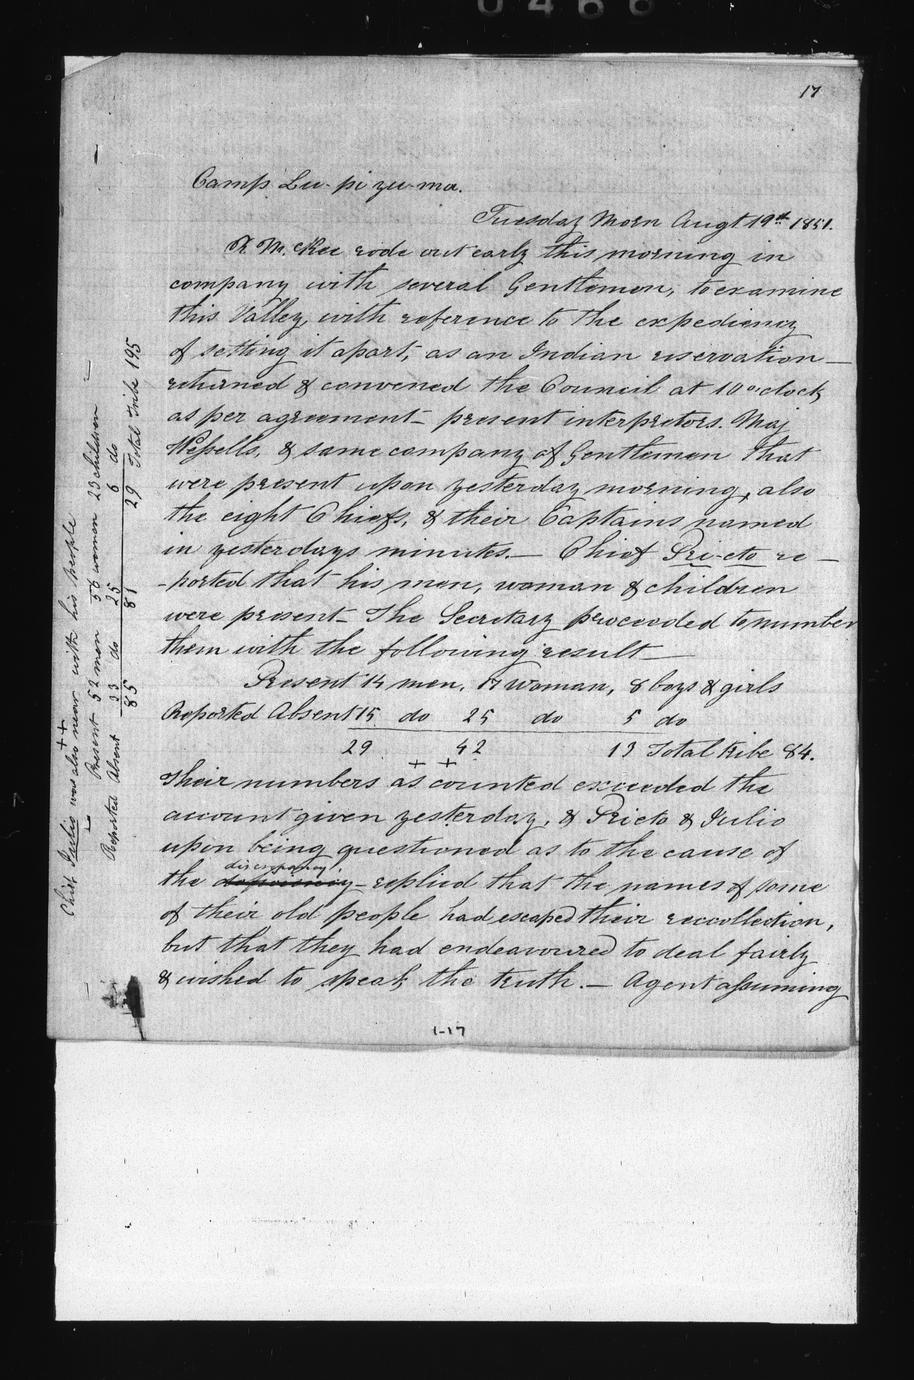 0466
17
Camp Lu-pi-yu-ma.
Tuesday Morn Augt 19th 1851.
R. McKee rode out early this morning in
company with several Gentlemen, to examine
this Valley, with reference to the expediency
of setting it apart, as an Indian reservation—
returned & convened the Council at 10 o'clock
as per agreement— present interpretors. Maj
Wessells, & same company of Gentlemen that
were present upon yesterday morning, also
the eight Chiefs, & their Captains named
in yesterdays minutes.— Chief Pri-e-to re-
-ported that his men, woman & children
were present— The Secretary proceeded to number
them with the following result—
Present 14 men, 17 woman, 8 boys & girls
Reported Absent 15 do 25 do 5 do
29 42 13 Total tribe 84.
+ +
Their numbers as counted exceeded the
account given yesterday, & Prieto & Julio
upon being questioned as to the cause of
discrepancy,
the — replied that the names of some
of their old people had escaped their reccollection,
but that they had endeavoured to deal fairly
& wished to speak the truth.— Agent assuming
1-17
+ +
Chief Julio was also near with his people
Present 52 men 56 women 23 children
Reported Absent 33 do 25 do 6 do
85 81 29 Total Tribe 195